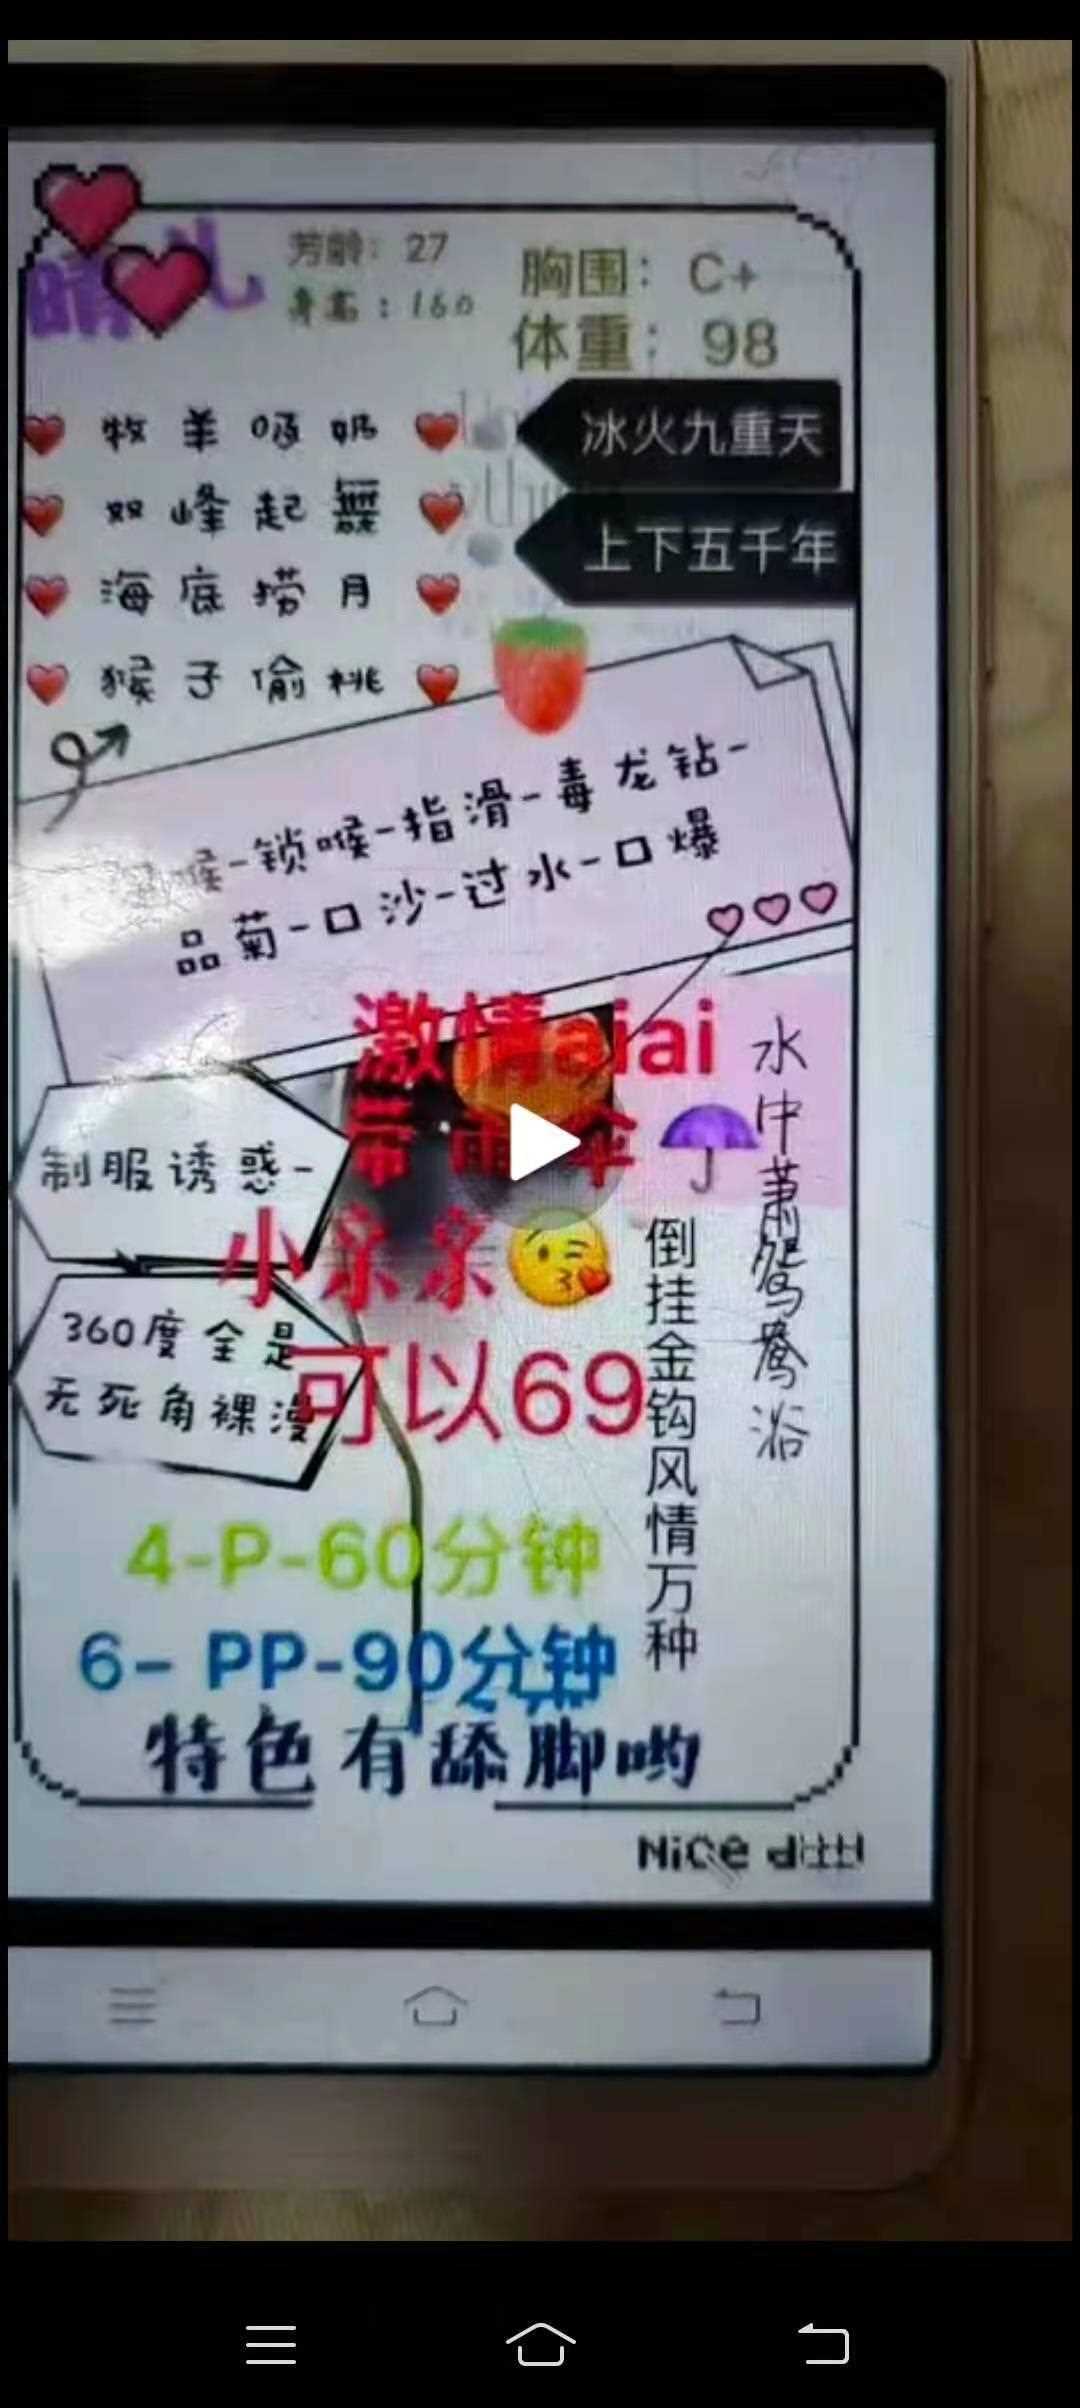 芳龄：27
身高：160
胸围：C+
体重：98
牧羊吸奶
双峰起舞
海底捞月
猴子偷桃
冰火九重天
上下五千年
喉-锁喉-指滑-毒龙钻-
品菊-口沙-过水-口爆
激情aiai
带雨伞
制服诱惑-
小亲亲
360度全是
无死角裸漫
可以69
水中萧鸳鸯浴
倒挂金钩风情万种
4-P-60分钟
6-PP-90分钟
特色有舔脚哟
Nice